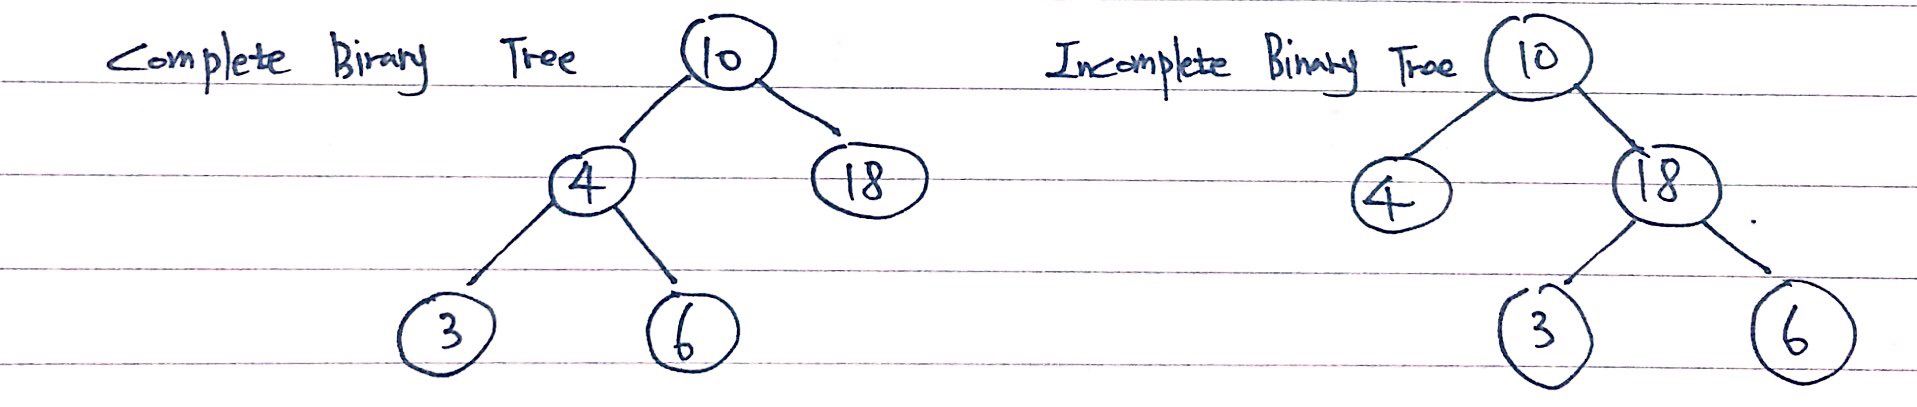 Complete Binary Tree
10
4 18
3 6
Incomplete Binary Tree
10
4 18
3 6